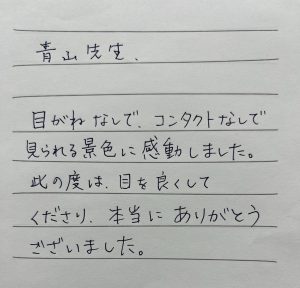 青山先生、
目がねなしで、コンタクトなしで
見られる景色に感動しました。
此の度は、目を良くして
くださり、本当にありがとう
ございました。